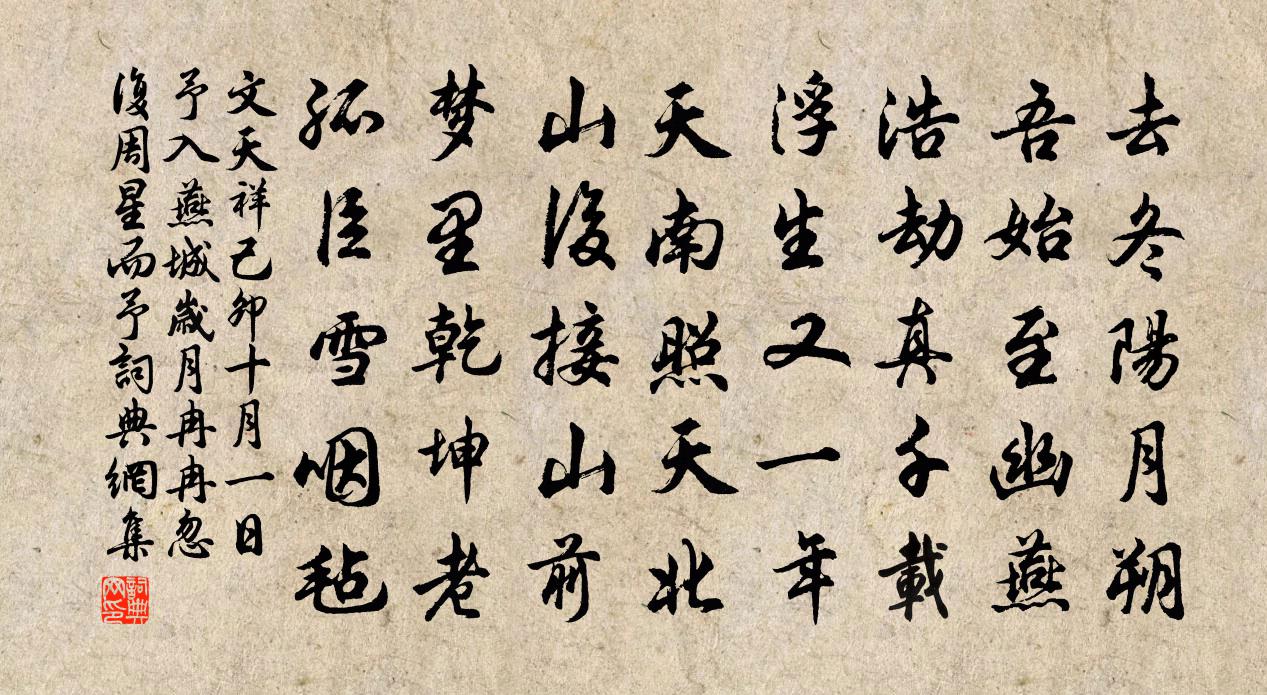 去冬陽月朔
吾始至幽燕
浩劫真千載
浮生又一年
天南照天北
山後接山前
梦里乾坤老
孤臣雪咽毡
文天祥己卯十月一日
予入燕城歲月冉冉忽
復周星而予詞典網集
詞典網印